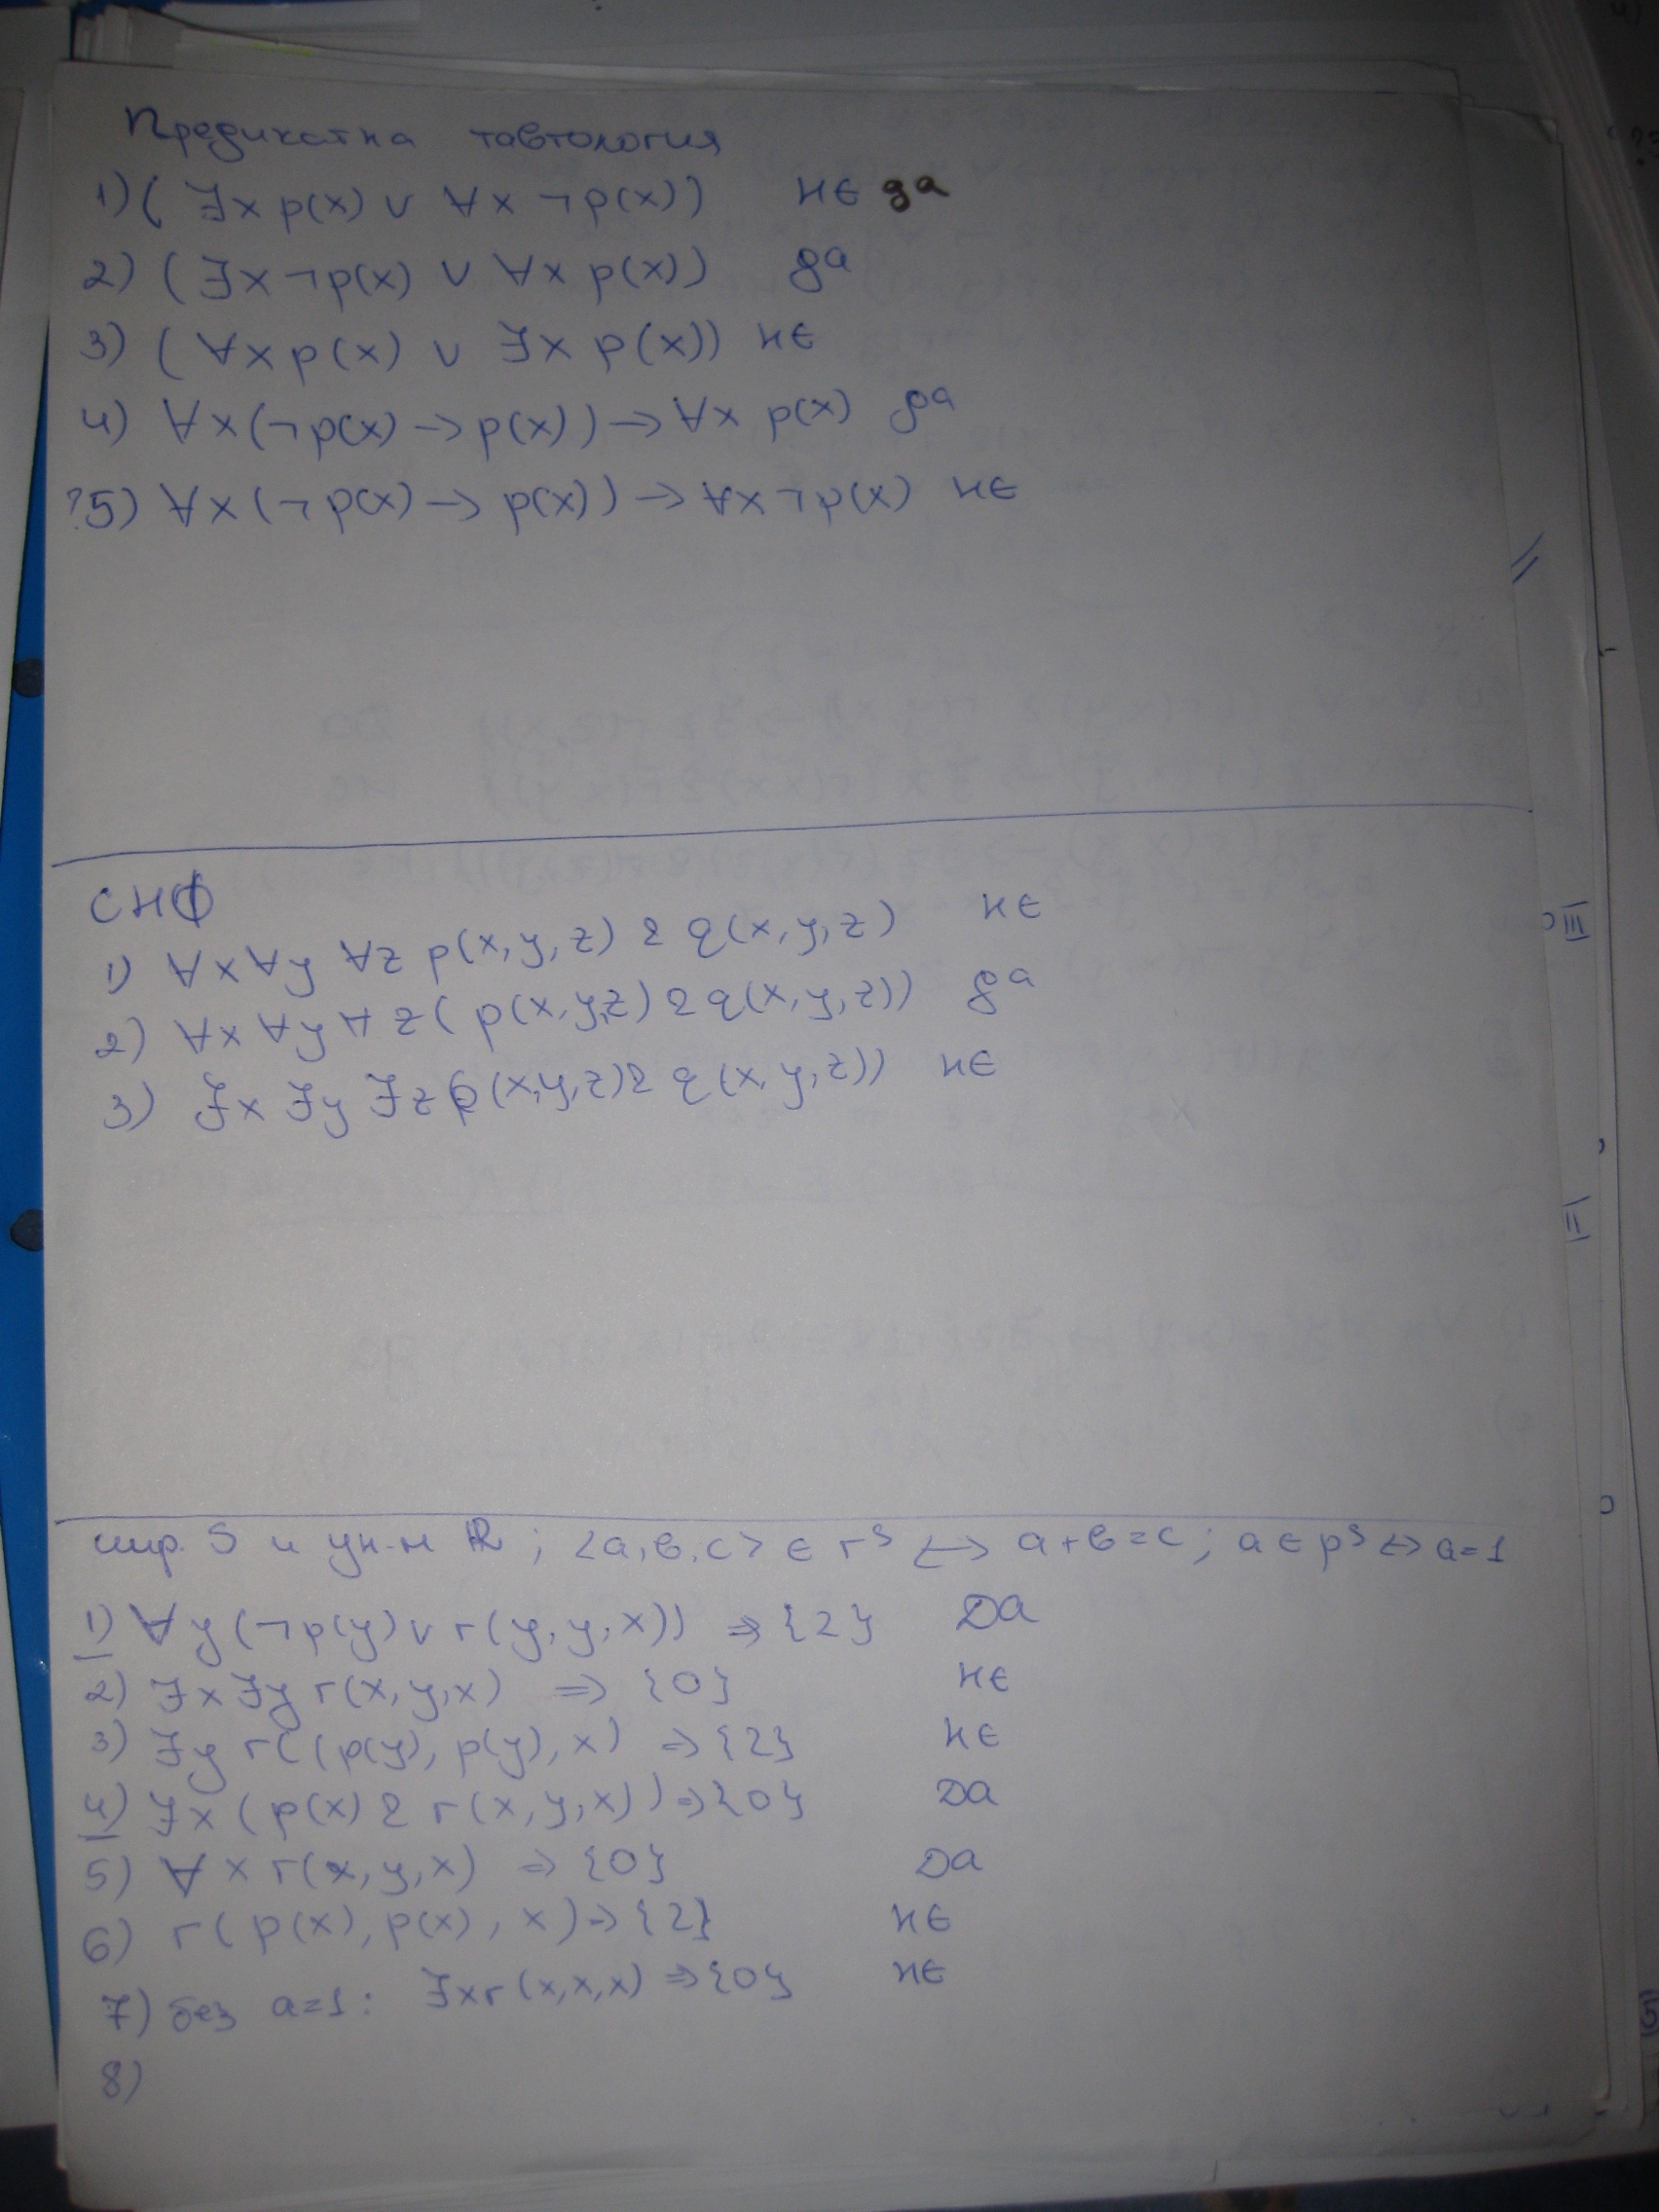 Предикатна тавтология
1) ( ∃x p(x) ∨ ∀x ¬p(x)) не да
2) (∃x ¬p(x) ∨ ∀x p(x)) да
3) (∀x p(x) ∨ ∃x p(x)) не
4) ∀x(¬p(x) → p(x)) → ∀x p(x) да
?5) ∀x(¬p(x) → p(x)) → ∀x ¬p(x) не
СНФ
1) ∀x∀y ∀z p(x,y,z) & q(x,y,z) не
2) ∀x ∀y ∀z( p(x,y,z) & q(x,y,z)) да
3) ∃x ∃y ∃z (p(x,y,z) & q(x,y,z)) не
стр. S и ун-м ℝ ; <a,b,c> ∈ r^S ↔ a+b=c ; a∈p^S ↔ a=1
1) ∀y(¬p(y) ∨ r(y,y,x)) ⇒ {2} Да
2) ∃x∃y r(x,y,x) ⇒ {0} не
3) ∃y r((p(y), p(y), x) ⇒ {2} не
4) ∃x (p(x) & r(x,y,x)) ⇒ {0} Да
5) ∀x r(x,y,x) ⇒ {0} Да
6) r( p(x), p(x), x) ⇒ {2} не
7) без a=1: ∃x r(x,x,x) ⇒ {0} не
8)
III
II